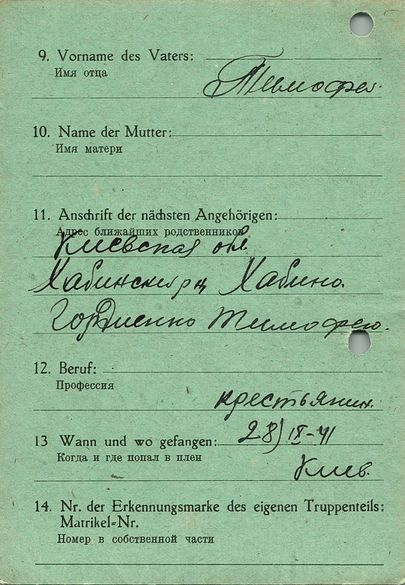 9. Vorname des Vaters:
Имя отца
Тимофей.
10. Name der Mutter:
Имя матери
11. Anschrift der nächsten Angehörigen:
Адрес ближайших родственников
Киевская обл.
Хабински рн Хабино.
Гордиенко Тимофею.
12. Beruf:
Профессия
крестьянин.
13 Wann und wo gefangen: 28) IX-41
Когда и где попал в плен
Киев.
14. Nr. der Erkennungsmarke des eigenen Truppenteils:
Matrikel-Nr.
Номер в собственной части